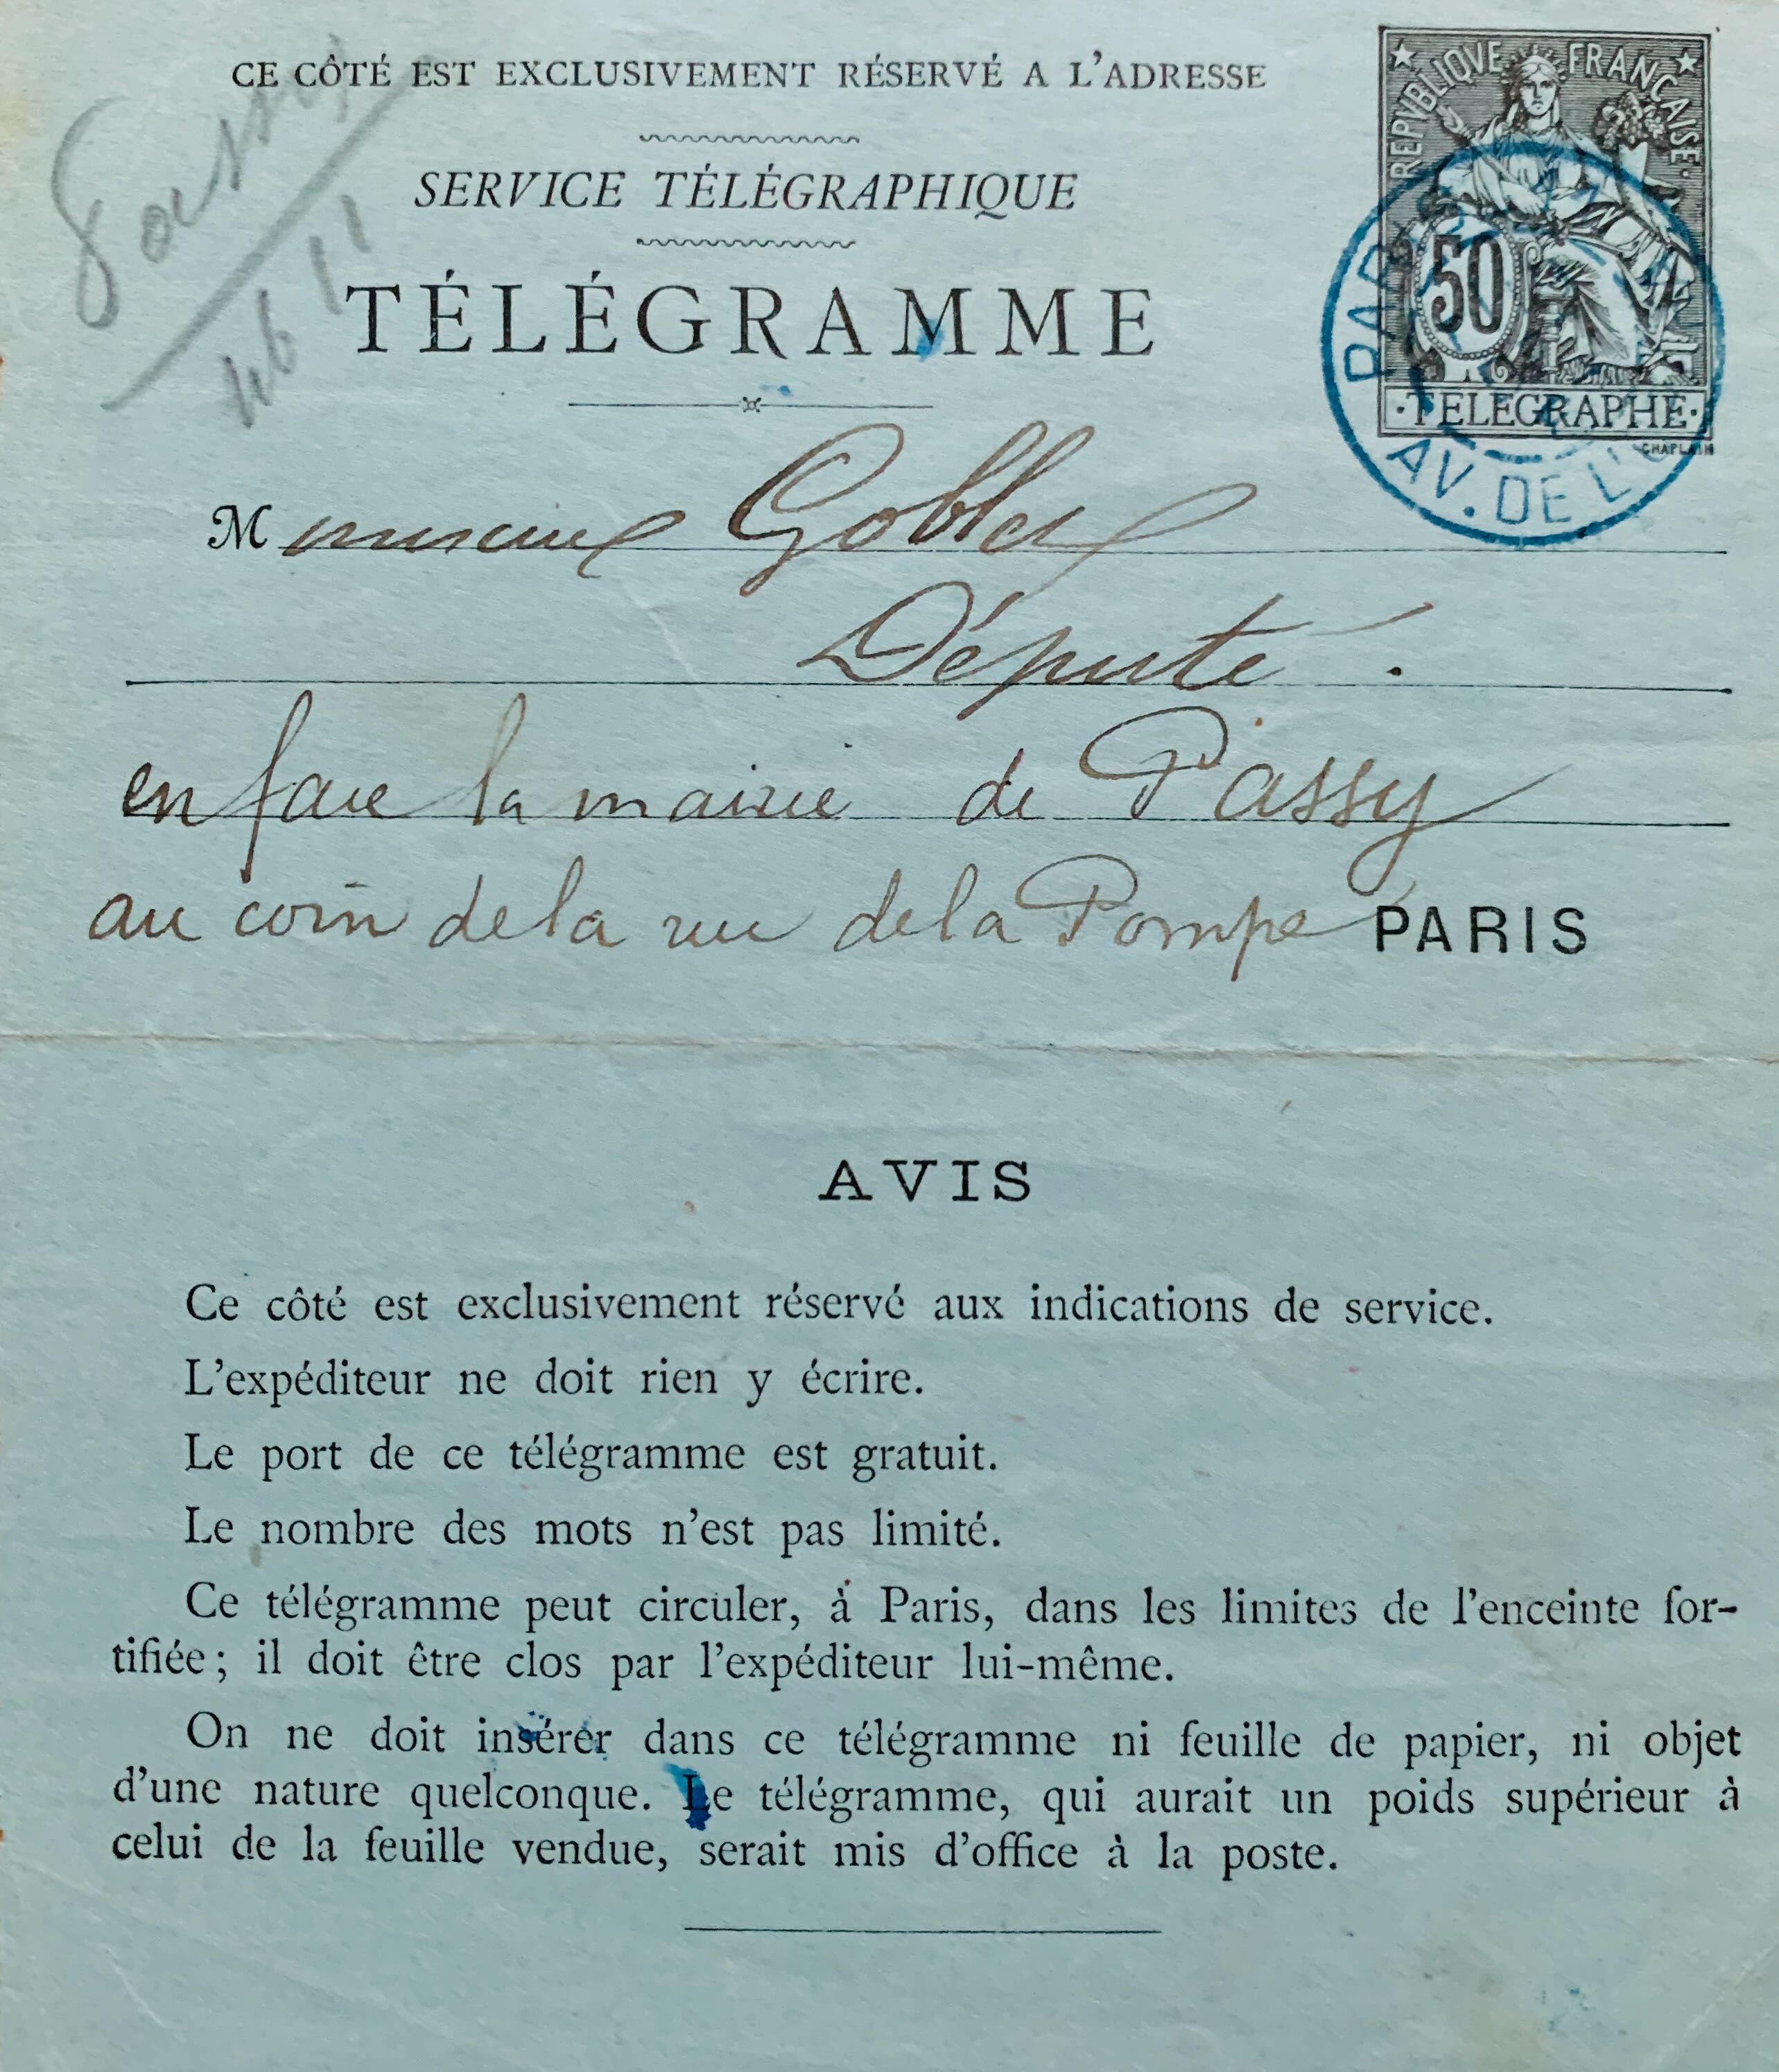 CE CÔTÉ EST EXCLUSIVEMENT RÉSERVÉ A L'ADRESSE
Passy
REPVBLIQVE FRANÇAISE
SERVICE TÉLÉGRAPHIQUE
50
TÉLÉGRAMME
TELEGRAPHE
CHAPLAIN
PARIS
AV. DE L'
M onsieur Goblet
Député.
en face la mairie de Passy
au coin de la rue de la Pompe PARIS
AVIS
Ce côté est exclusivement réservé aux indications de service.
L'expéditeur ne doit rien y écrire.
Le port de ce télégramme est gratuit.
Le nombre des mots n'est pas limité.
Ce télégramme peut circuler, à Paris, dans les limites de l'enceinte for-
tifiée; il doit être clos par l'expéditeur lui-même.
On ne doit insérer dans ce télégramme ni feuille de papier, ni objet
d'une nature quelconque. Le télégramme, qui aurait un poids supérieur à
celui de la feuille vendue, serait mis d'office à la poste.